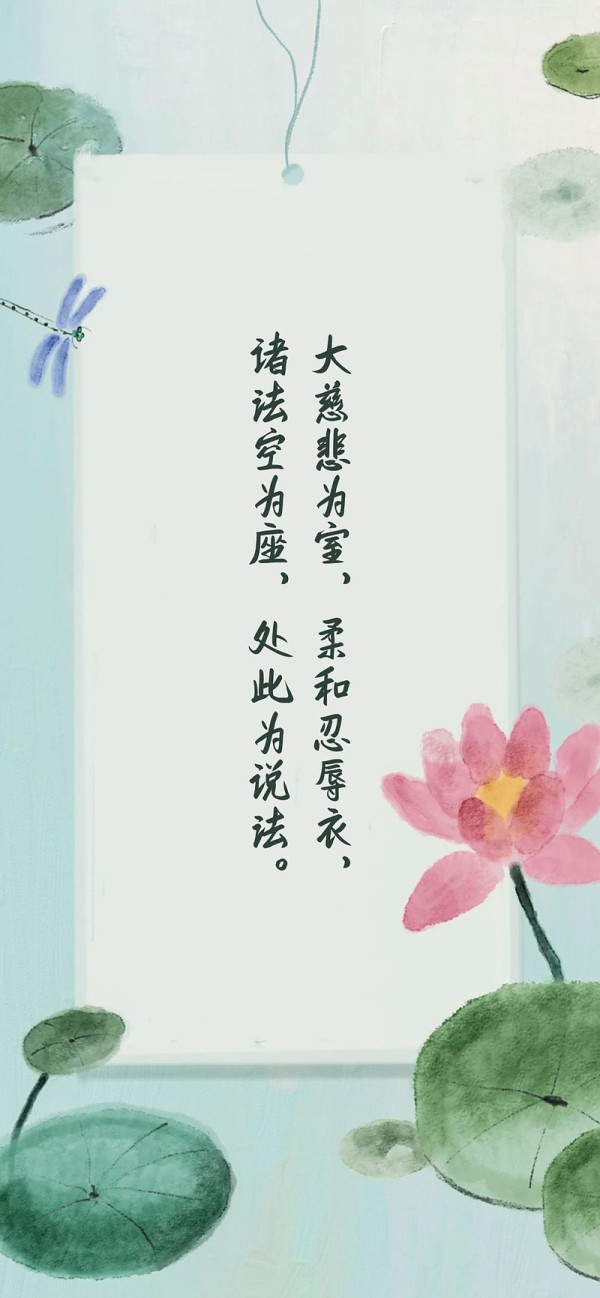 大慈悲为室，柔和忍辱衣，
诸法空为座，处此为说法。